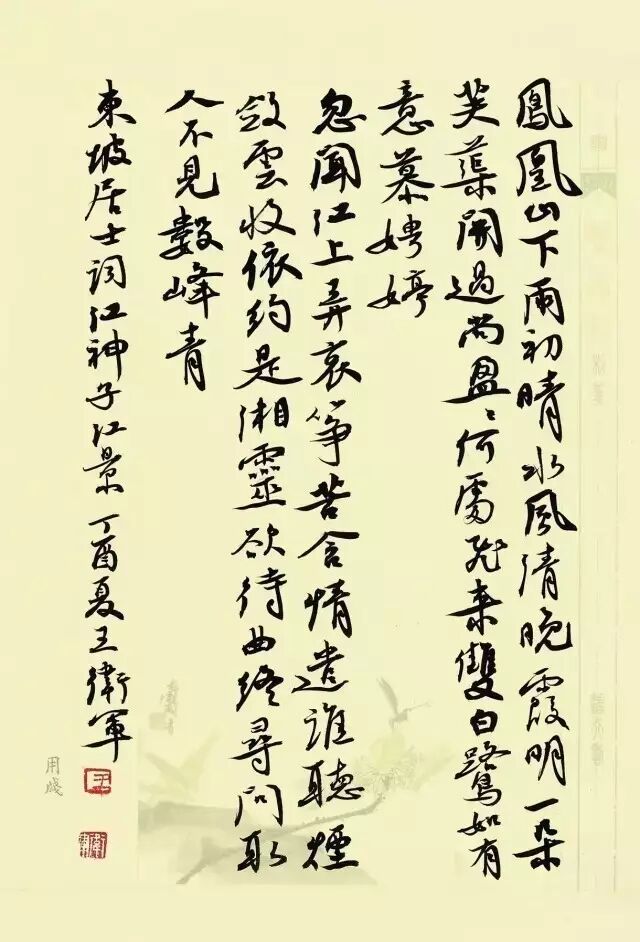 鳳凰山下雨初晴水風清晚霞明一朵
芙蕖開過尚盈〻何處飛來雙白鷺如有
意慕娉婷
忽聞江上弄哀箏苦含情遣誰聽煙
斂雲收依約是湘靈欲待曲終尋問取
人不見數峰青
東坡居士詞江神子江景丁酉夏王衛軍
用箋